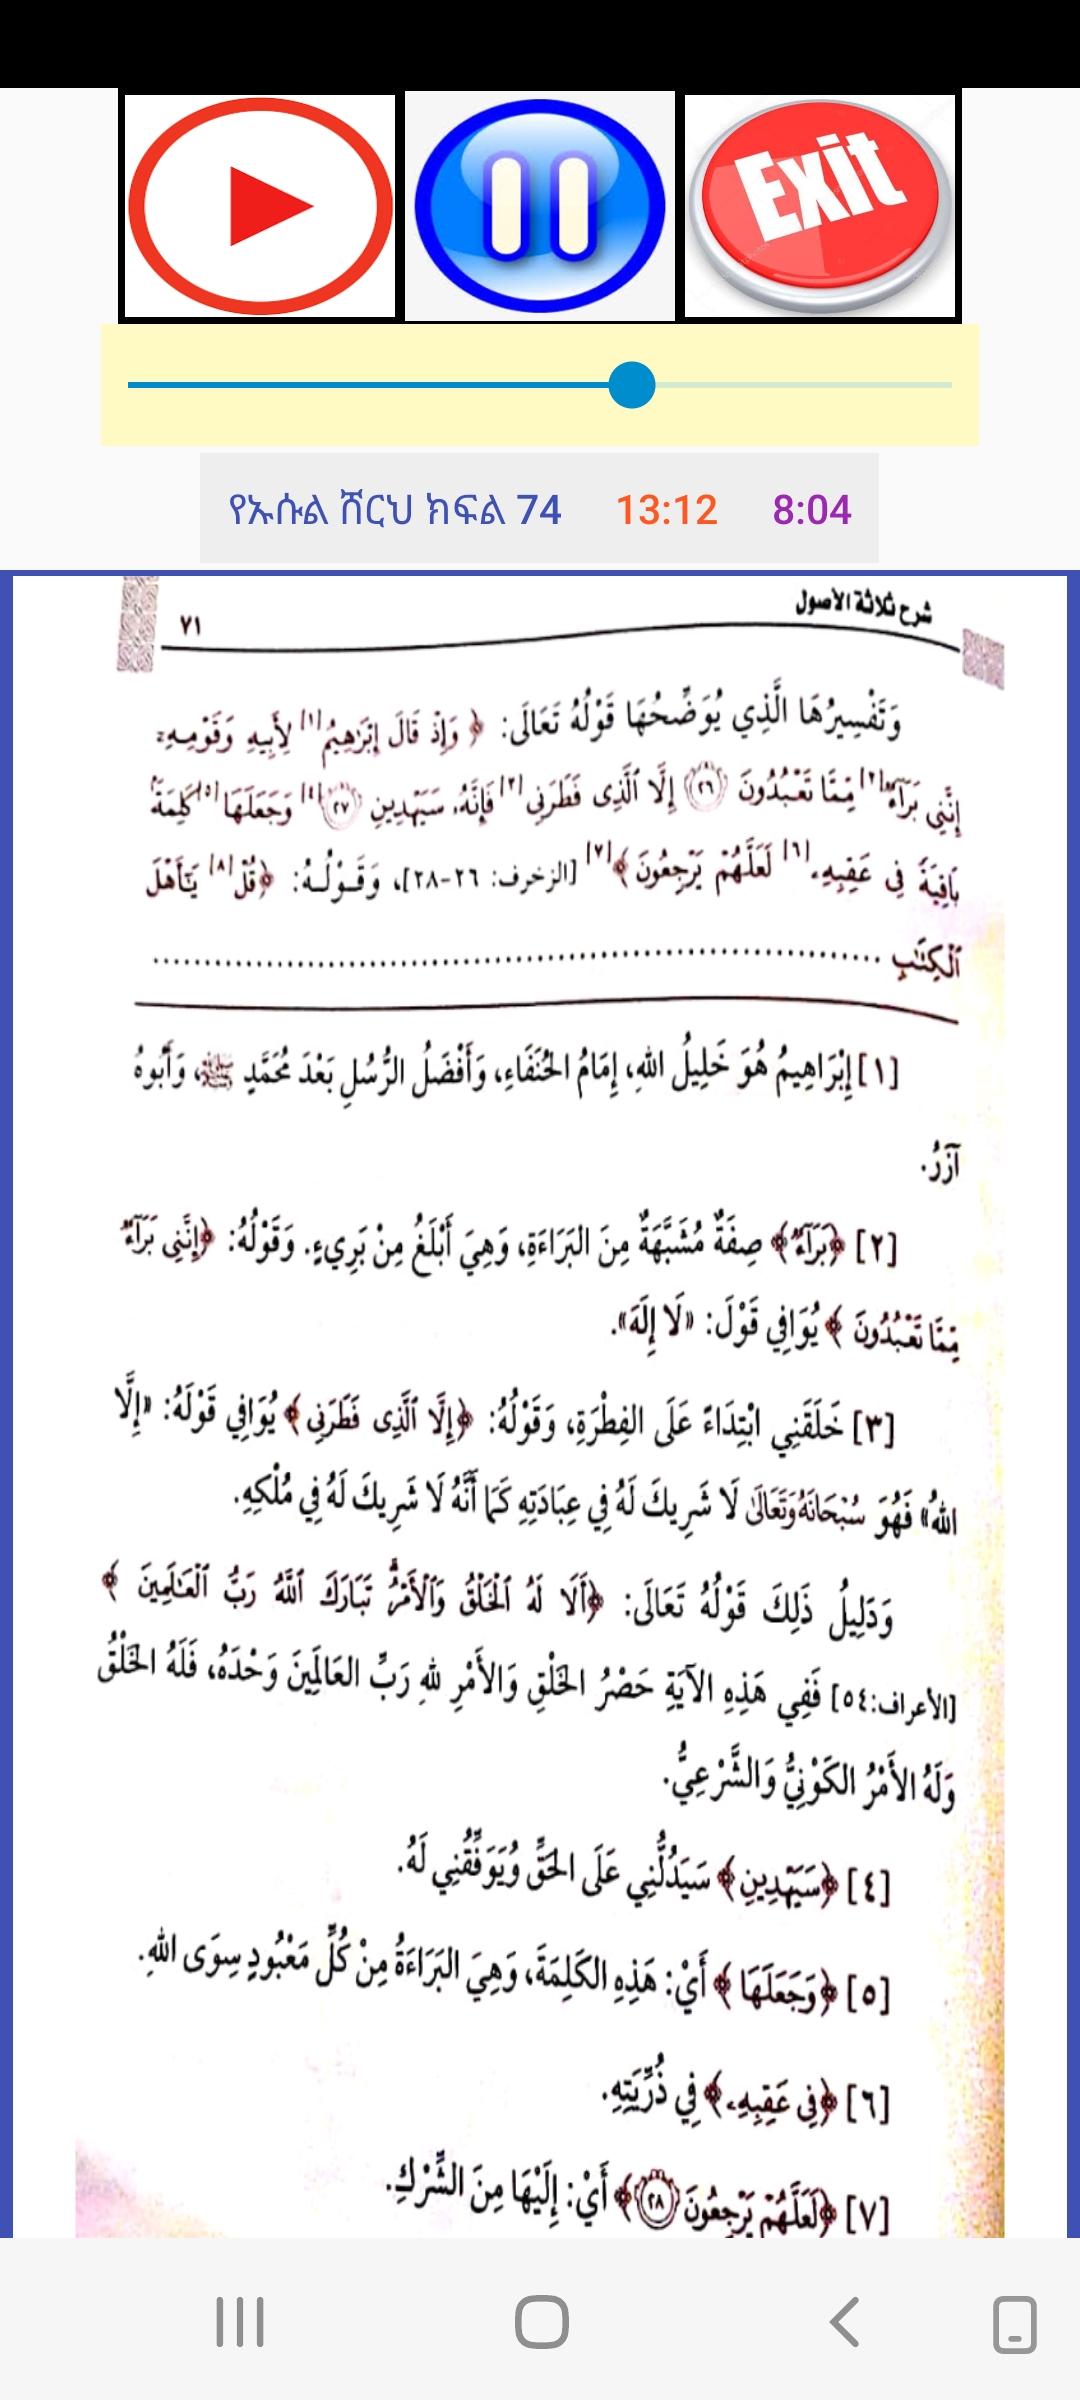 Exit
የኡሱል ሸርህ ክፍል 74 13:12 8:04
شرح ثلاثة الأصول ٧١
وَتَفْسِيرُهَا الَّذِي يُوَضِّحُهَا قَوْلُهُ تَعَالَى: ﴿وَإِذْ قَالَ إِبْرَٰهِيمُ[١] لِأَبِيهِ وَقَوْمِهِۦٓ
إِنَّنِى بَرَآءٌ[٢] مِّمَّا تَعْبُدُونَ ٢٦ إِلَّا ٱلَّذِى فَطَرَنِى[٣] فَإِنَّهُۥ سَيَهْدِينِ ٢٧[٤] وَجَعَلَهَا[٥] كَلِمَةًۢ
بَاقِيَةً فِى عَقِبِهِۦ[٦] لَعَلَّهُمْ يَرْجِعُونَ﴾[٧] [الزخرف: ٢٦-٢٨]، وَقَوْلُهُ: ﴿قُلْ[٨] يَٰٓأَهْلَ
ٱلْكِتَٰبِ ........................................
[١] إِبْرَاهِيمُ هُوَ خَلِيلُ اللهِ، إِمَامُ الحُنَفَاءِ، وَأَفْضَلُ الرُّسُلِ بَعْدَ مُحَمَّدٍ ﷺ، وَأَبُوهُ
آزَرُ.
[٢] ﴿بَرَآءٌ﴾ صِفَةٌ مُشَبَّهَةٌ مِنَ البَرَاءَةِ، وَهِيَ أَبْلَغُ مِنْ بَرِيءٍ. وَقَوْلُهُ: ﴿إِنَّنِى بَرَآءٌ
مِّمَّا تَعْبُدُونَ﴾ يُوَافِي قَوْلَ: «لَا إِلَهَ».
[٣] خَلَقَنِي ابْتِدَاءً عَلَى الفِطْرَةِ، وَقَوْلُهُ: ﴿إِلَّا ٱلَّذِى فَطَرَنِى﴾ يُوَافِي قَوْلَهُ: «إِلَّا
اللهُ» فَهُوَ سُبْحَانَهُ وَتَعَالَى لَا شَرِيكَ لَهُ فِي عِبَادَتِهِ كَمَا أَنَّهُ لَا شَرِيكَ لَهُ فِي مُلْكِهِ.
وَدَلِيلُ ذَلِكَ قَوْلُهُ تَعَالَى: ﴿أَلَا لَهُ ٱلْخَلْقُ وَٱلْأَمْرُ تَبَارَكَ ٱللَّهُ رَبُّ ٱلْعَٰلَمِينَ﴾
[الأعراف:٥٤] فَفِي هَذِهِ الآيَةِ حَصْرُ الخَلْقِ وَالأَمْرِ للهِ رَبِّ العَالَمِينَ وَحْدَهُ، فَلَهُ الخَلْقُ
وَلَهُ الأَمْرُ الكَوْنِيُّ وَالشَّرْعِيُّ.
[٤] ﴿سَيَهْدِينِ﴾ سَيَدُلُّنِي عَلَى الحَقِّ وَيُوَفِّقُنِي لَهُ.
[٥] ﴿وَجَعَلَهَا﴾ أَيْ: هَذِهِ الكَلِمَةَ، وَهِيَ البَرَاءَةُ مِنْ كُلِّ مَعْبُودٍ سِوَى اللهِ.
[٦] ﴿فِى عَقِبِهِۦ﴾ فِي ذُرِّيَّتِهِ.
[٧] ﴿لَعَلَّهُمْ يَرْجِعُونَ ٢٨﴾ أَيْ: إِلَيْهَا مِنَ الشِّرْكِ.